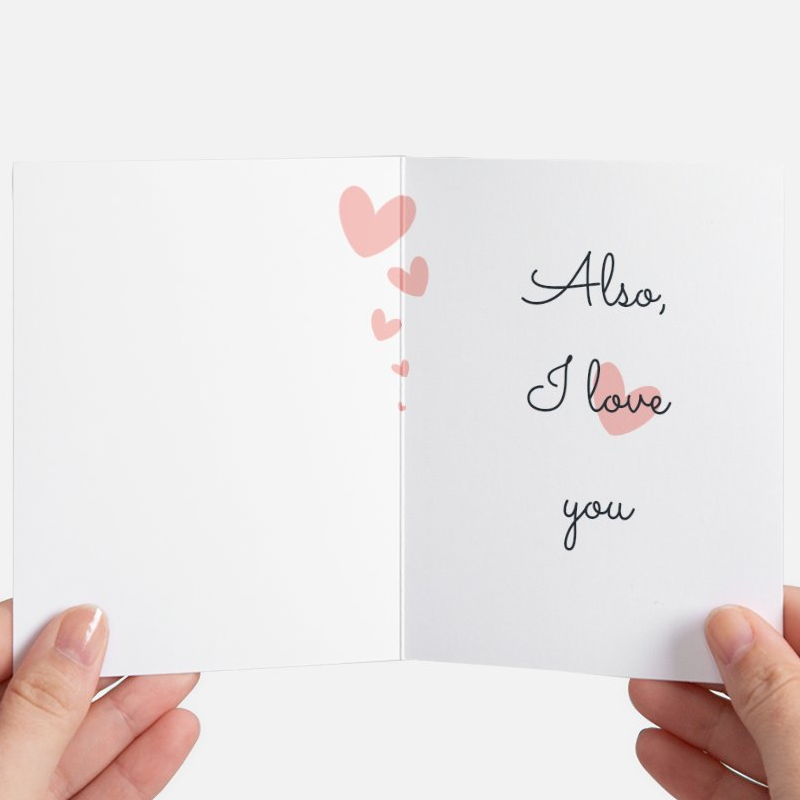 Also,
I love
you